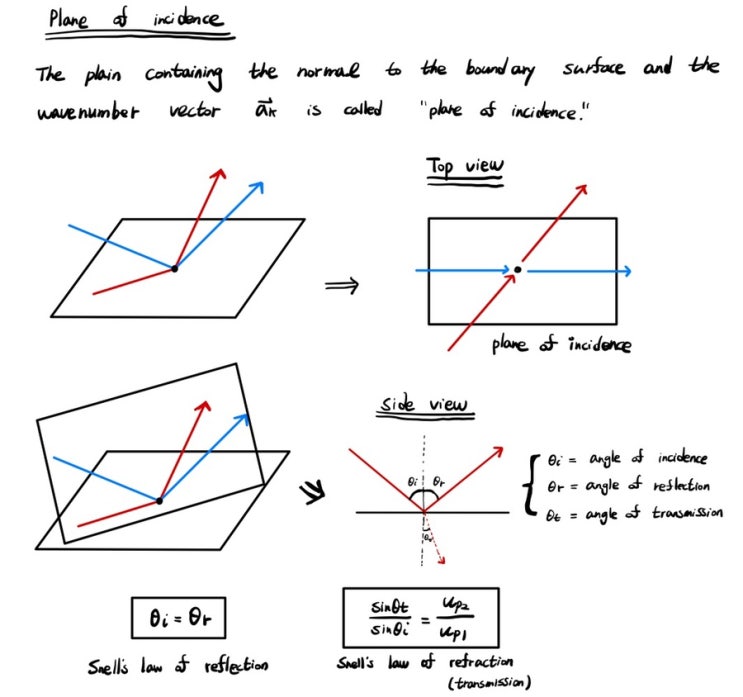 Plane of incidence
The plain containing the normal to the boundary surface and the
wavenumber vector a⃗k is called "plane of incidence."
Top view
plane of incidence
Side view
θi θr
θt
θi = angle of incidence
θr = angle of reflection
θt = angle of transmission
θi = θr
Snell's law of reflection
sinθt / sinθi = up2 / up1
Snell's law of refraction
(transmission)